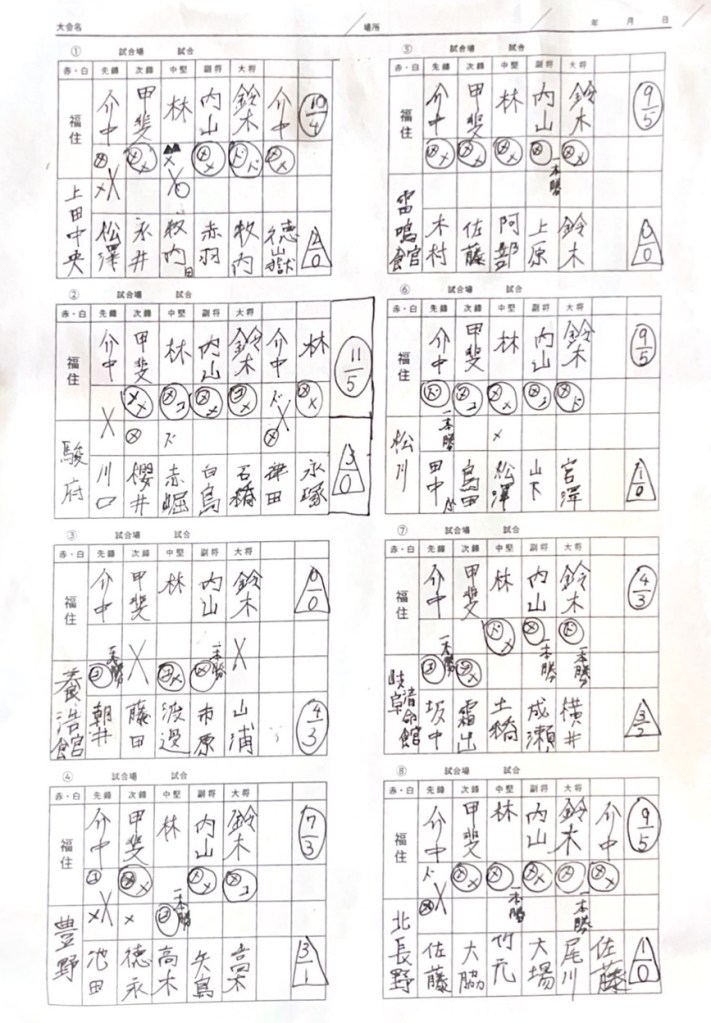 大会名 場所 年 月 日
① 試合場 試合
赤・白 先鋒 次鋒 中堅 副将 大将
福住 介中 甲斐 林 内山 鈴木 介中 10/4
メ メメ ▲▲ メ メメ ドド メメ
上田中央 松澤 永井 牧内 赤羽 牧内 徳嶽 2/0
② 試合場 試合
赤・白 先鋒 次鋒 中堅 副将 大将
福住 介中 甲斐 林 内山 鈴木 介中 林 11/5
駿府 川口 櫻井 赤堀 白鳥 石橋 津田 永塚 3/0
③ 試合場 試合
赤・白 先鋒 次鋒 中堅 副将 大将
福住 介中 甲斐 林 内山 鈴木 0/0
一本勝 一本勝
養浩館 朝井 藤田 渡辺 市原 山浦 4/3
④ 試合場 試合
赤・白 先鋒 次鋒 中堅 副将 大将
福住 介中 甲斐 林 内山 鈴木 7/3
一本勝
豊野 池田 徳永 高木 矢島 3/1
⑤ 試合場 試合
赤・白 先鋒 次鋒 中堅 副将 大将
福住 介中 甲斐 林 内山 鈴木 9/5
一本勝
雷鳴館 木村 佐藤 阿部 上原 鈴木 0/0
⑥ 試合場 試合
赤・白 先鋒 次鋒 中堅 副将 大将
福住 介中 甲斐 林 内山 鈴木 9/5
一本勝
松川 田中 島田 松澤 山下 宮澤 1/0
⑦ 試合場 試合
赤・白 先鋒 次鋒 中堅 副将 大将
福住 介中 甲斐 林 内山 鈴木 4/3
一本勝 一本勝 一本勝
坂中 霜出 土橋 成瀬 横井 3/2
⑧ 試合場 試合
赤・白 先鋒 次鋒 中堅 副将 大将
福住 介中 甲斐 林 内山 鈴木 介中 9/5
一本勝 一本勝
北長野 佐藤 大脇 竹元 大場 尾川 佐藤 1/0